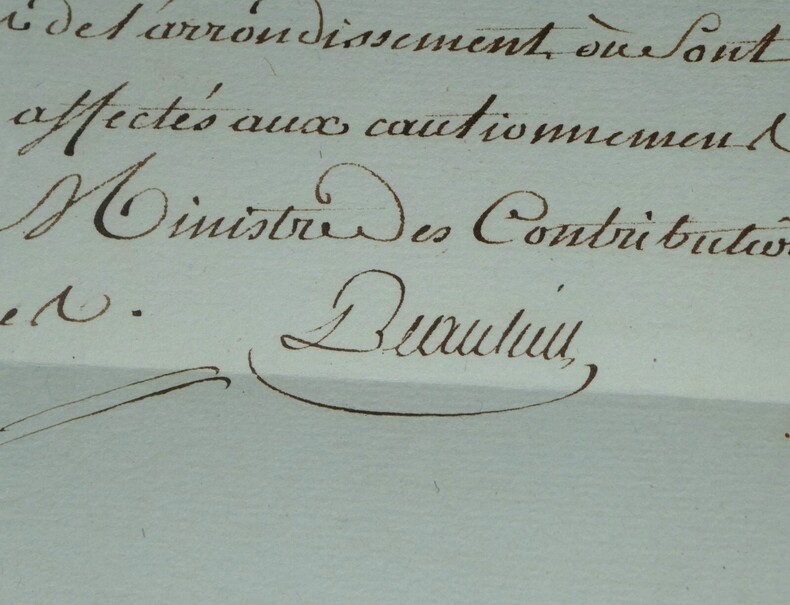 de l'arrondissement où sont
affectés aux cautionnement
Ministre des Contribution
Beaulieu